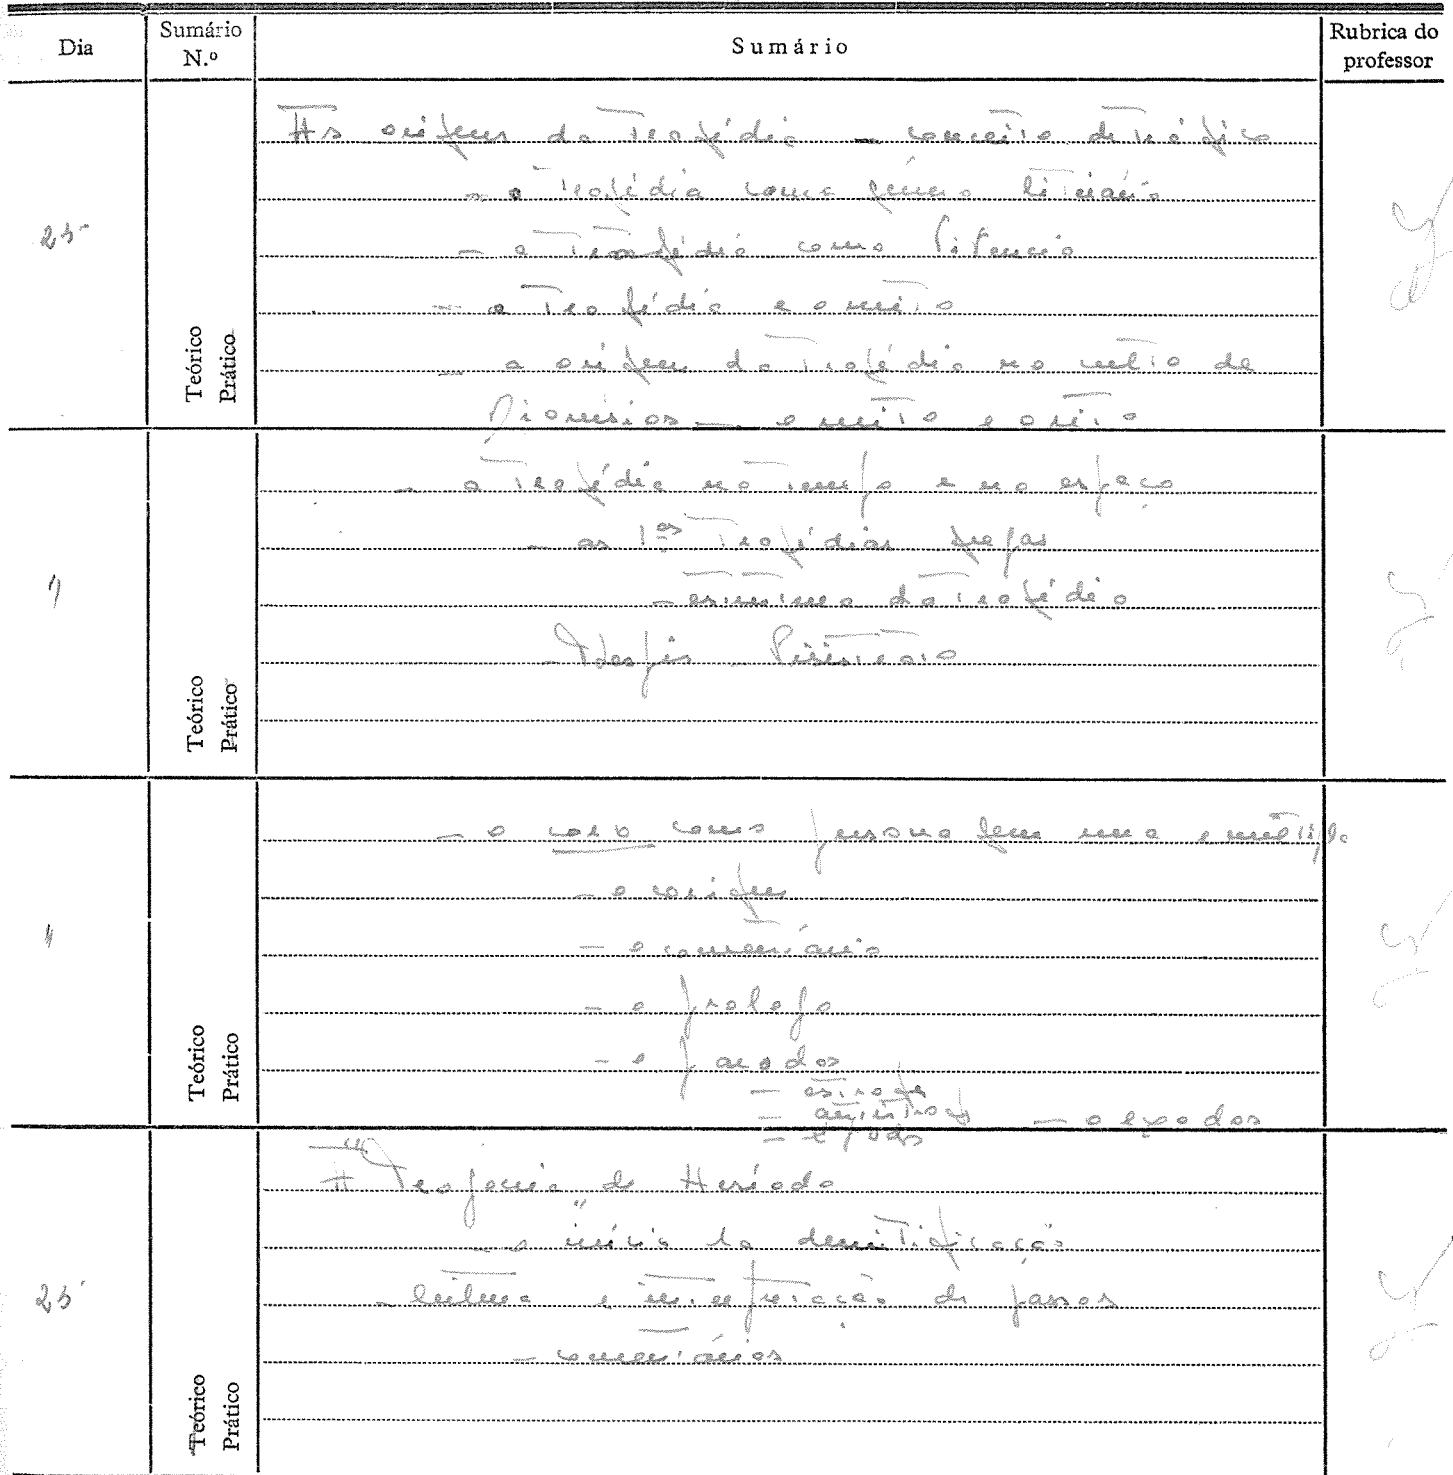 Dia
Sumário N.º
Sumário
Rubrica do professor
25
Teórico
Prático
As origens da Tragédia – conceito de trágico
– a Tragédia como género literário
– a Tragédia como
– a Tragédia e o mito
– a origem da Tragédia no culto de
Dionísios – o mito e o rito
"
Teórico
Prático
– a Tragédia no tempo e no espaço
– as 1.as Tragédias gregas
– estrutura da Tragédia
– Thespis – Pisístrato
"
Teórico
Prático
– o coro como personagem una e múltipla
– o corifeu
– o comentário
– o prologo
– o parodos
– estrofe
– antístrofe – o exodos
– epodo
25
Teórico
Prático
A "Teogonia" de Hesíodo
– o início da demitificação
– leitura e interpretação de passos
– comentários